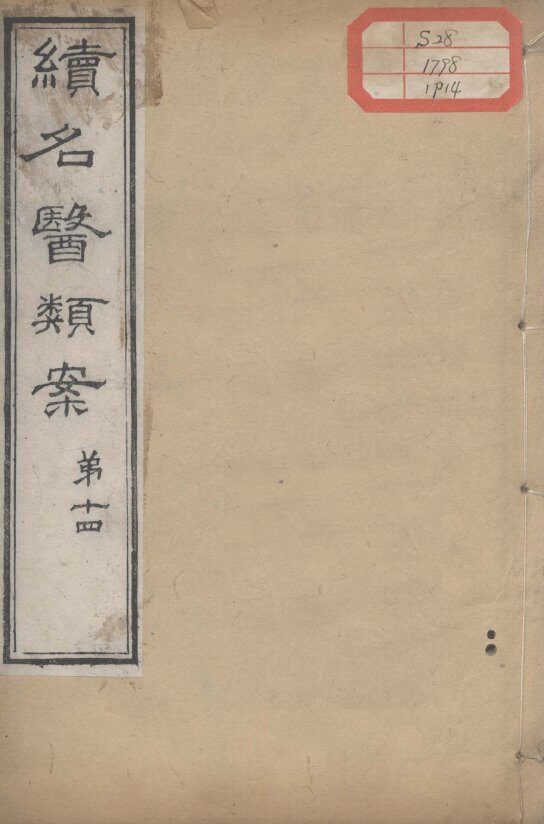 續名醫類案
弟十四
S28
1798
1P14